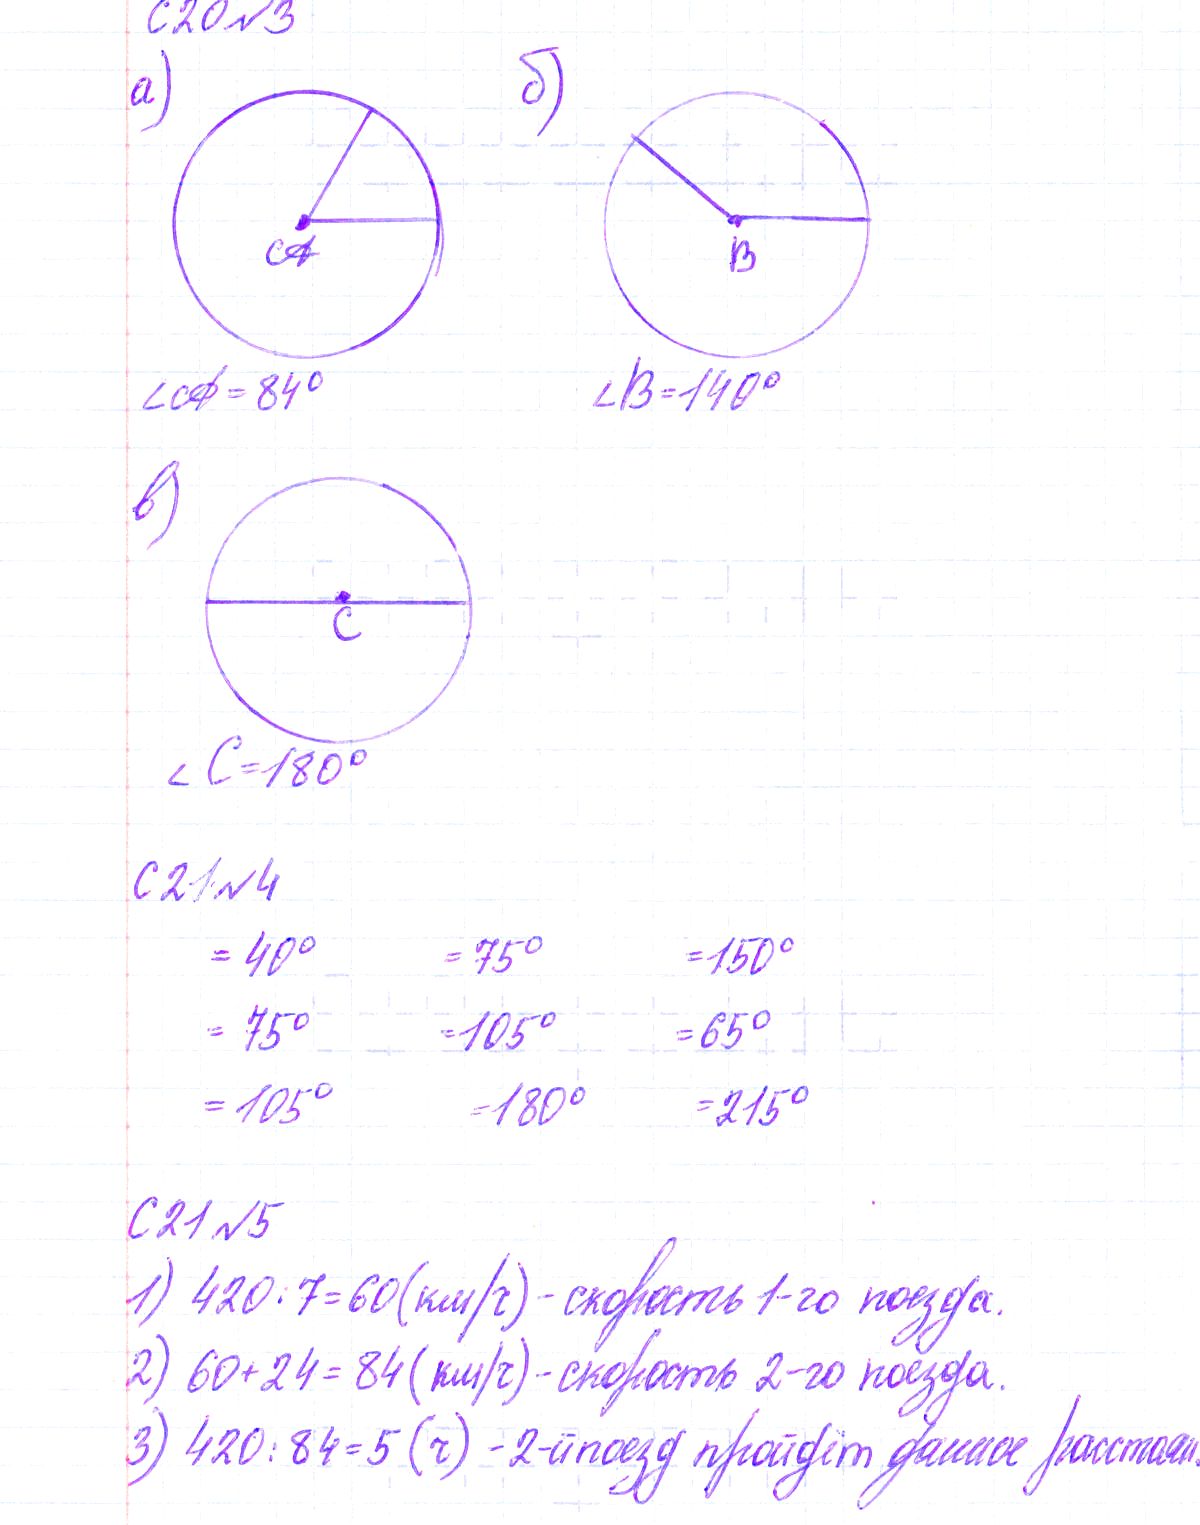 С20 №3
а) б)
А В
∠А = 84° ∠В = 140°
в)
С
∠С = 180°
С21 №4
= 40° = 75° = 150°
= 75° = 105° = 65°
= 105° = 180° = 215°
С21 №5
1) 420 : 7 = 60 (км/ч) - скорость 1-го поезда.
2) 60 + 24 = 84 (км/ч) - скорость 2-го поезда.
3) 420 : 84 = 5 (ч) - 2-й поезд пройдёт данное расстоян